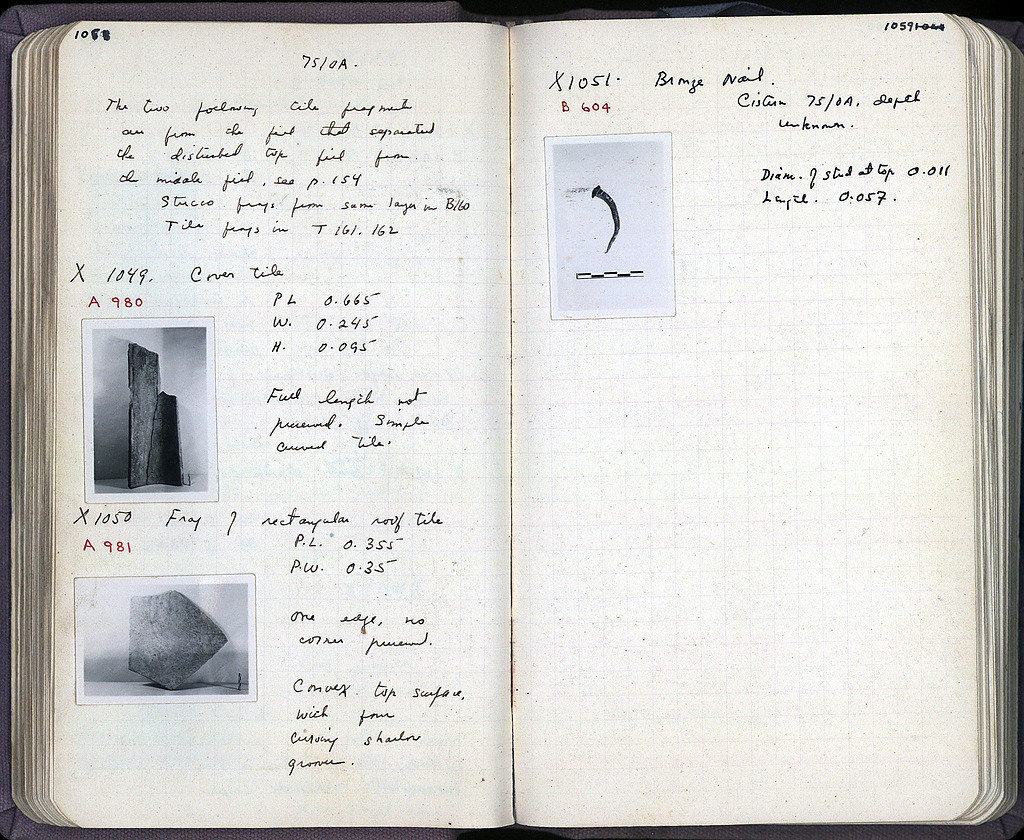 1058
75/0A.
The two following tile fragments
are from the fill that separated
the disturbed top fill from
the middle fill, see p. 154
Stucco frags from same layer in B160
Tile frags in T 161. 162
X 1049. Cover tile
A 980
P L 0.665
W. 0.245
H. 0.095
Full length not
preserved. Simple
curved tile.
X 1050 Frag of rectangular roof tile
A 981
P.L. 0.355
P.W. 0.35
One edge, no
corner preserved.
Convex top surface,
with four
curving shallow
grooves.
1059
X1051. Bronze Nail.
B 604
Cistern 75/0A. depth
unknown.
Diam. of stud at top 0.011
Length. 0.057.